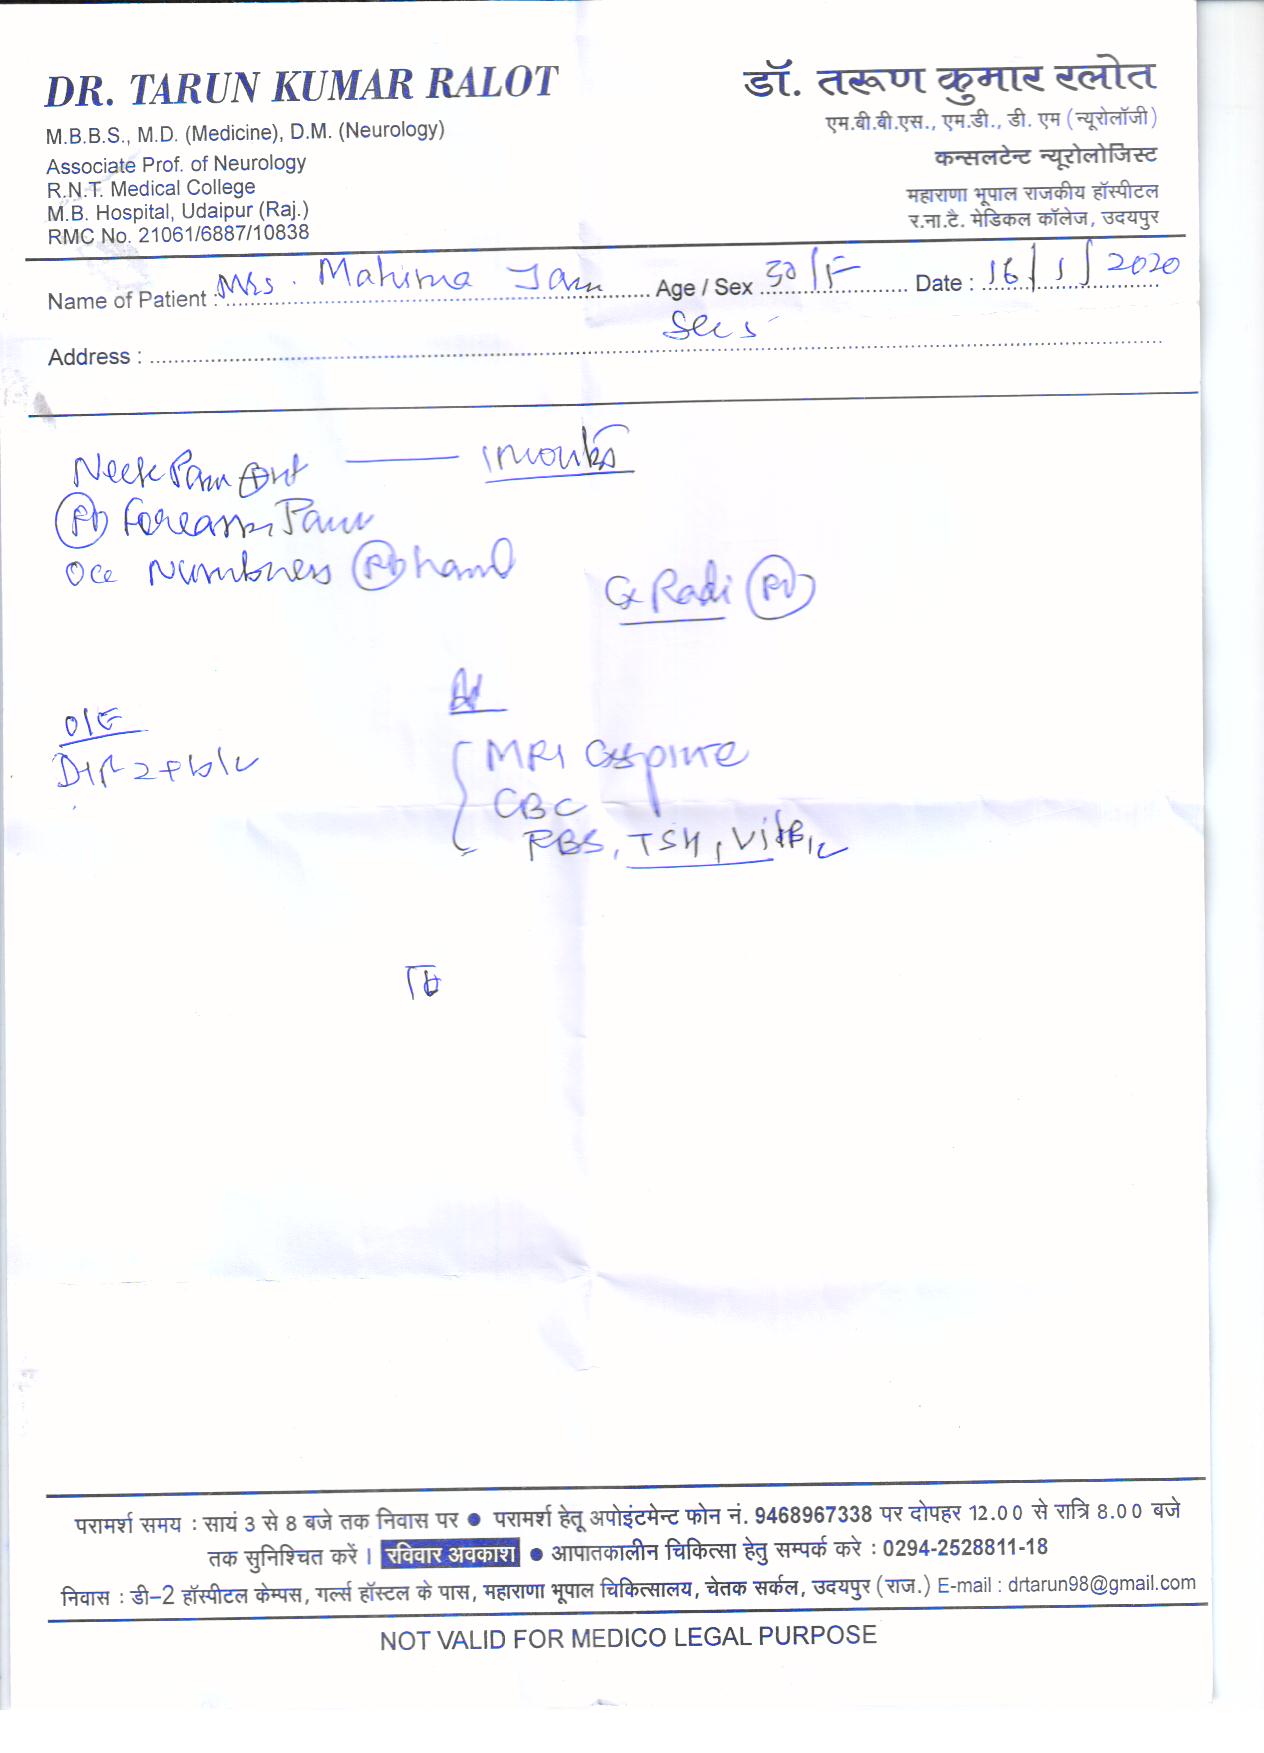 DR. TARUN KUMAR RALOT
M.B.B.S., M.D. (Medicine), D.M. (Neurology)
Associate Prof. of Neurology
R.N.T. Medical College
M.B. Hospital, Udaipur (Raj.)
RMC No. 21061/6887/10838
डॉ. तरूण कुमार रलोत
एम.बी.बी.एस., एम.डी., डी. एम (न्यूरोलॉजी)
कन्सलटेन्ट न्यूरोलोजिस्ट
महाराणा भूपाल राजकीय हॉस्पीटल
र.ना.टै. मेडिकल कॉलेज, उदयपुर
Name of Patient : Mrs. Mahima Jain Age / Sex 30/F Date : 16/1/2020
Address :
Neck Pain 1 month
Rt Forearm Pain
Occ Numbness Rt hand
Cx Radi Rt
O/E
Adv
MRI Cx spine
CBC
RBS, TSH, Vit B12
परामर्श समय : सायं 3 से 8 बजे तक निवास पर ● परामर्श हेतू अपोइंटमेन्ट फोन नं. 9468967338 पर दोपहर 12.00 से रात्रि 8.00 बजे
तक सुनिश्चित करें । रविवार अवकाश ● आपातकालीन चिकित्सा हेतु सम्पर्क करे : 0294-2528811-18
निवास : डी–2 हॉस्पीटल केम्पस, गर्ल्स हॉस्टल के पास, महाराणा भूपाल चिकित्सालय, चेतक सर्कल, उदयपुर (राज.) E-mail : drtarun98@gmail.com
NOT VALID FOR MEDICO LEGAL PURPOSE